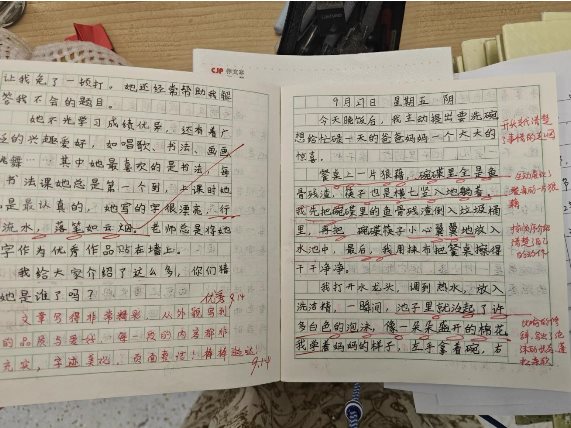 CJP 作文本
让我免了一顿打。她还经常帮助我解
答我不会的题目。
她不光学习成绩优异,还有着广
泛的兴趣爱好,如唱歌、书法、画画
跳舞……其中她最喜欢的是书法,每
书法课她总是第一个到,上课时她
是最认真的,她写的字很漂亮,行
流水,落笔如云烟。老师总是将她
字作为优秀作品贴在墙上。
我给大家介绍了这么多,你们猜
她是谁了吗?
优秀 9.14
文章写得非常精彩
从外貌写到
的品质与爱好,每一段的内容都非
充实,字迹美观,页面整洁!棒棒
9.14
9月 日 星期五 阴
今天晚饭后,我主动提出要洗碗
想给忙碌一天的爸爸妈妈一个大大的
惊喜。
餐桌上一片狼藉,碗碟里全是鱼
骨残渣,筷子也是横七竖八地躺着。
我先把碗碟里的鱼骨残渣倒入垃圾桶
里,再把碗碟筷子小心翼翼地放入
水池中,最后,我用抹布把餐桌擦得
干干净净。
我打开水龙头,调到热水,放入
洗洁精,一瞬间,池子里就泛起了许
多白色的泡沫,像一朵朵盛开的棉花。
我学着妈妈的样子,左手拿着碗,右
开头交代清楚
了事情的起因